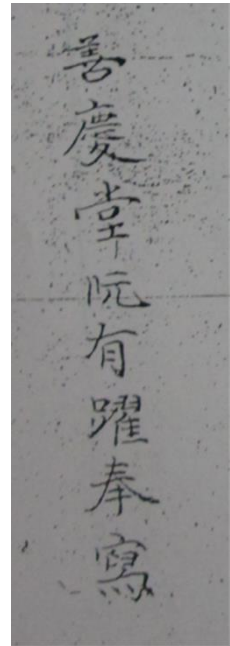 善慶堂阮有躍奉寫